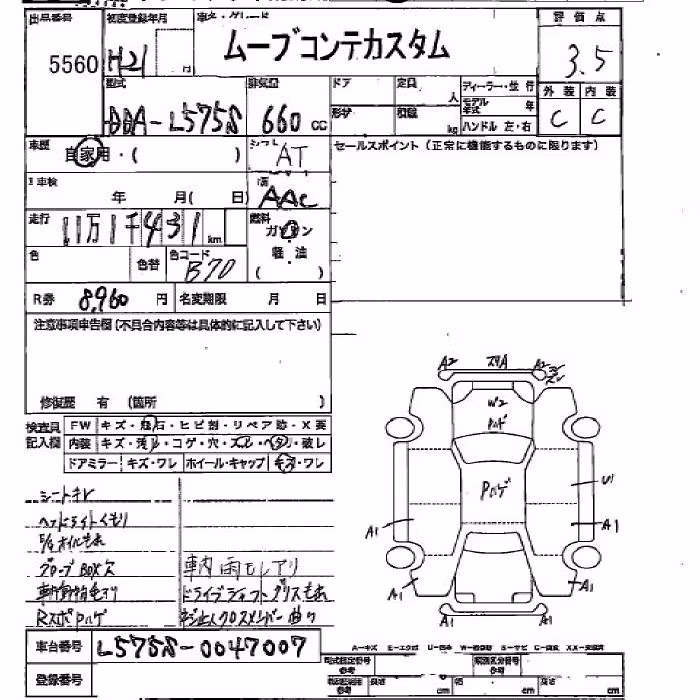 出品番号 初度登録年月 車名・グレード 評価点
5560 H21 ムーブコンテカスタム 3.5
型式 排気量 ドア 定員 人 ディーラー・並行 外装 内装
DBA-L575S 660 cc 形状 積載 kg モデル年式 年 C C
ハンドル 左・右
車歴 自家用・( ) シフト AT セールスポイント (正常に機能するものに限ります)
車検 年 月( 日) AAC
走行 11万1千431 km 燃料 ガソリン
軽油
( )
色 色替 色コード B70
R券 8,960 円 名変期限 月 日
注意事項申告欄(不具合内容等は具体的に記入して下さい)
修復歴 有 (箇所 )
検査員記入欄 FW キズ・飛石・ヒビ割・リペア跡・X要
内装 キズ・汚れ・コゲ・穴・スレ・ヘタリ・破レ
ドアミラー キズ・ワレ ホイール・キャップ キズ・ワレ
シートキレ
ヘッドライトくもり
グローブBOX穴 車内雨モレアリ
RスポPハゲ
A2 A2
W2
Pハゲ
U1
A1 A1
A1 A1
A1 A1
車台番号 L575S-0047007
登録番号
A-キズ E-エクボ U-凹み S-サビ C-腐食 XX-交換済
型式指定番号 参考 類別区分番号 参考
長さ cm 幅 cm 高さ cm